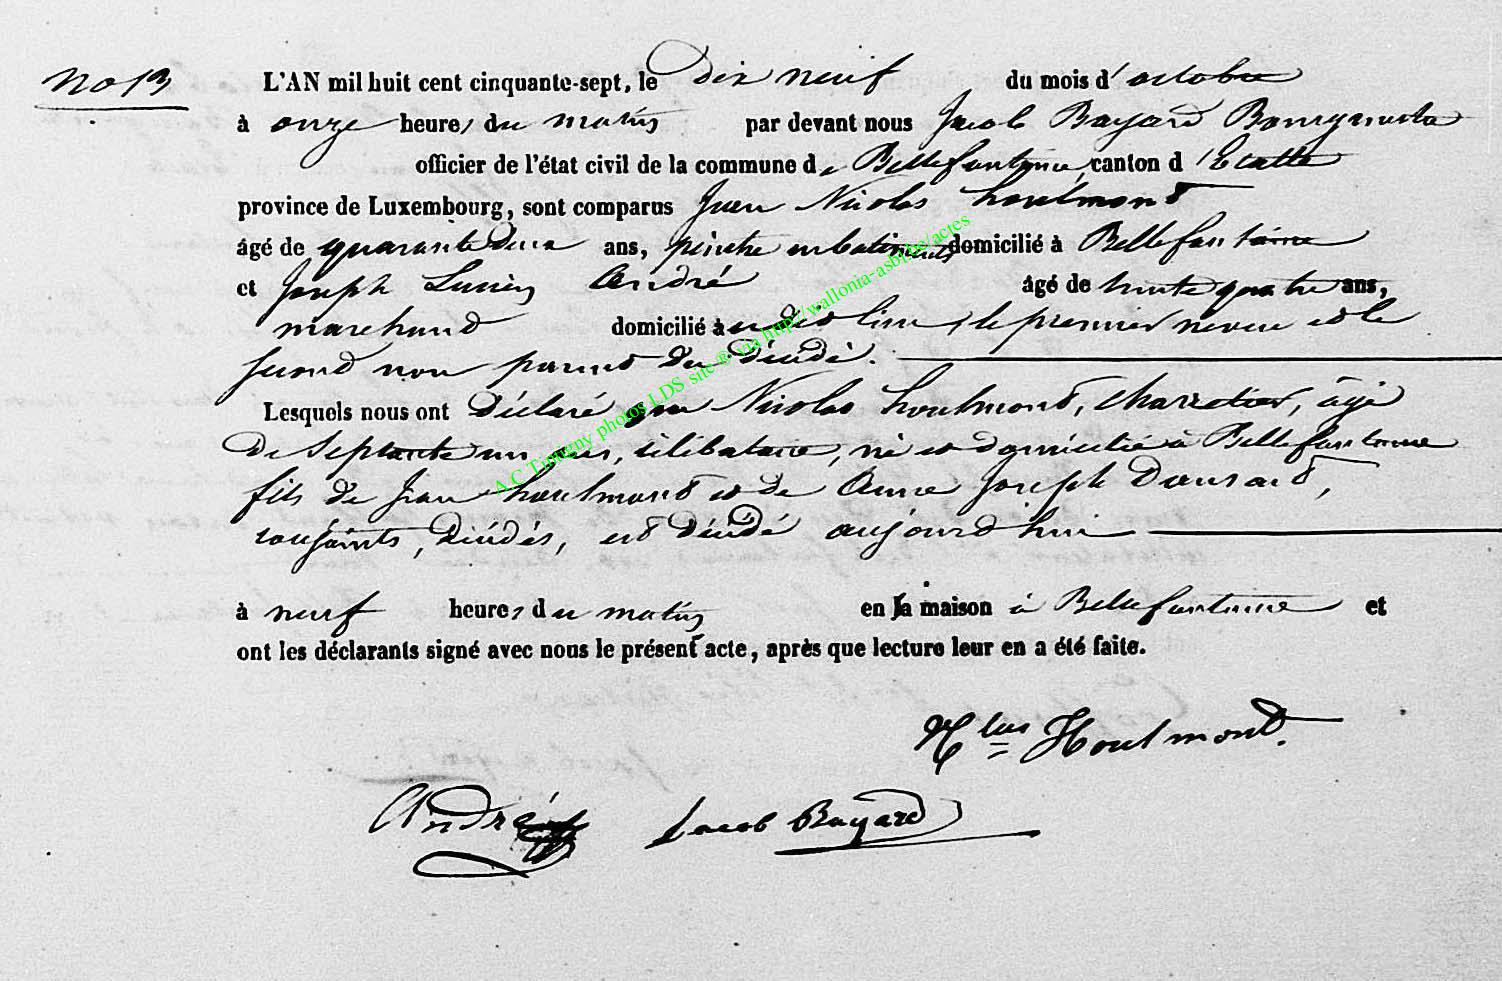 No 13
L'AN mil huit cent cinquante-sept, le dix neuf du mois d'octobre
à onze heures du matin par devant nous Jacob Bayard Bourgmestre
officier de l'état civil de la commune de Bellefontaine, canton d'Etalle
province de Luxembourg, sont comparus Jean Nicolas houlmont
âgé de quarante deux ans, peintre en batiments domicilié à Bellefontaine
et Joseph Lucien André âgé de trente quatre ans,
marchand domicilié à u dit lieu, le premier neveu et le
second non parent du décédé.
Lesquels nous ont déclaré que Nicolas houlmont, charretier, âgé
de septante un ans, célibataire, né et domicilié à Bellefontaine
fils de Jean houlmont et de Anne Joseph
conjoints, décédés, est décédé aujourd'hui
à neuf heures du matin en sa maison à Bellefontaine et
ont les déclarants signé avec nous le présent acte, après que lecture leur en a été faite.
Nlas Houlmont.
André Jacob Bayard
A.C Tintigny photos LDS site ® via http://wallonia-asbl.be/actes